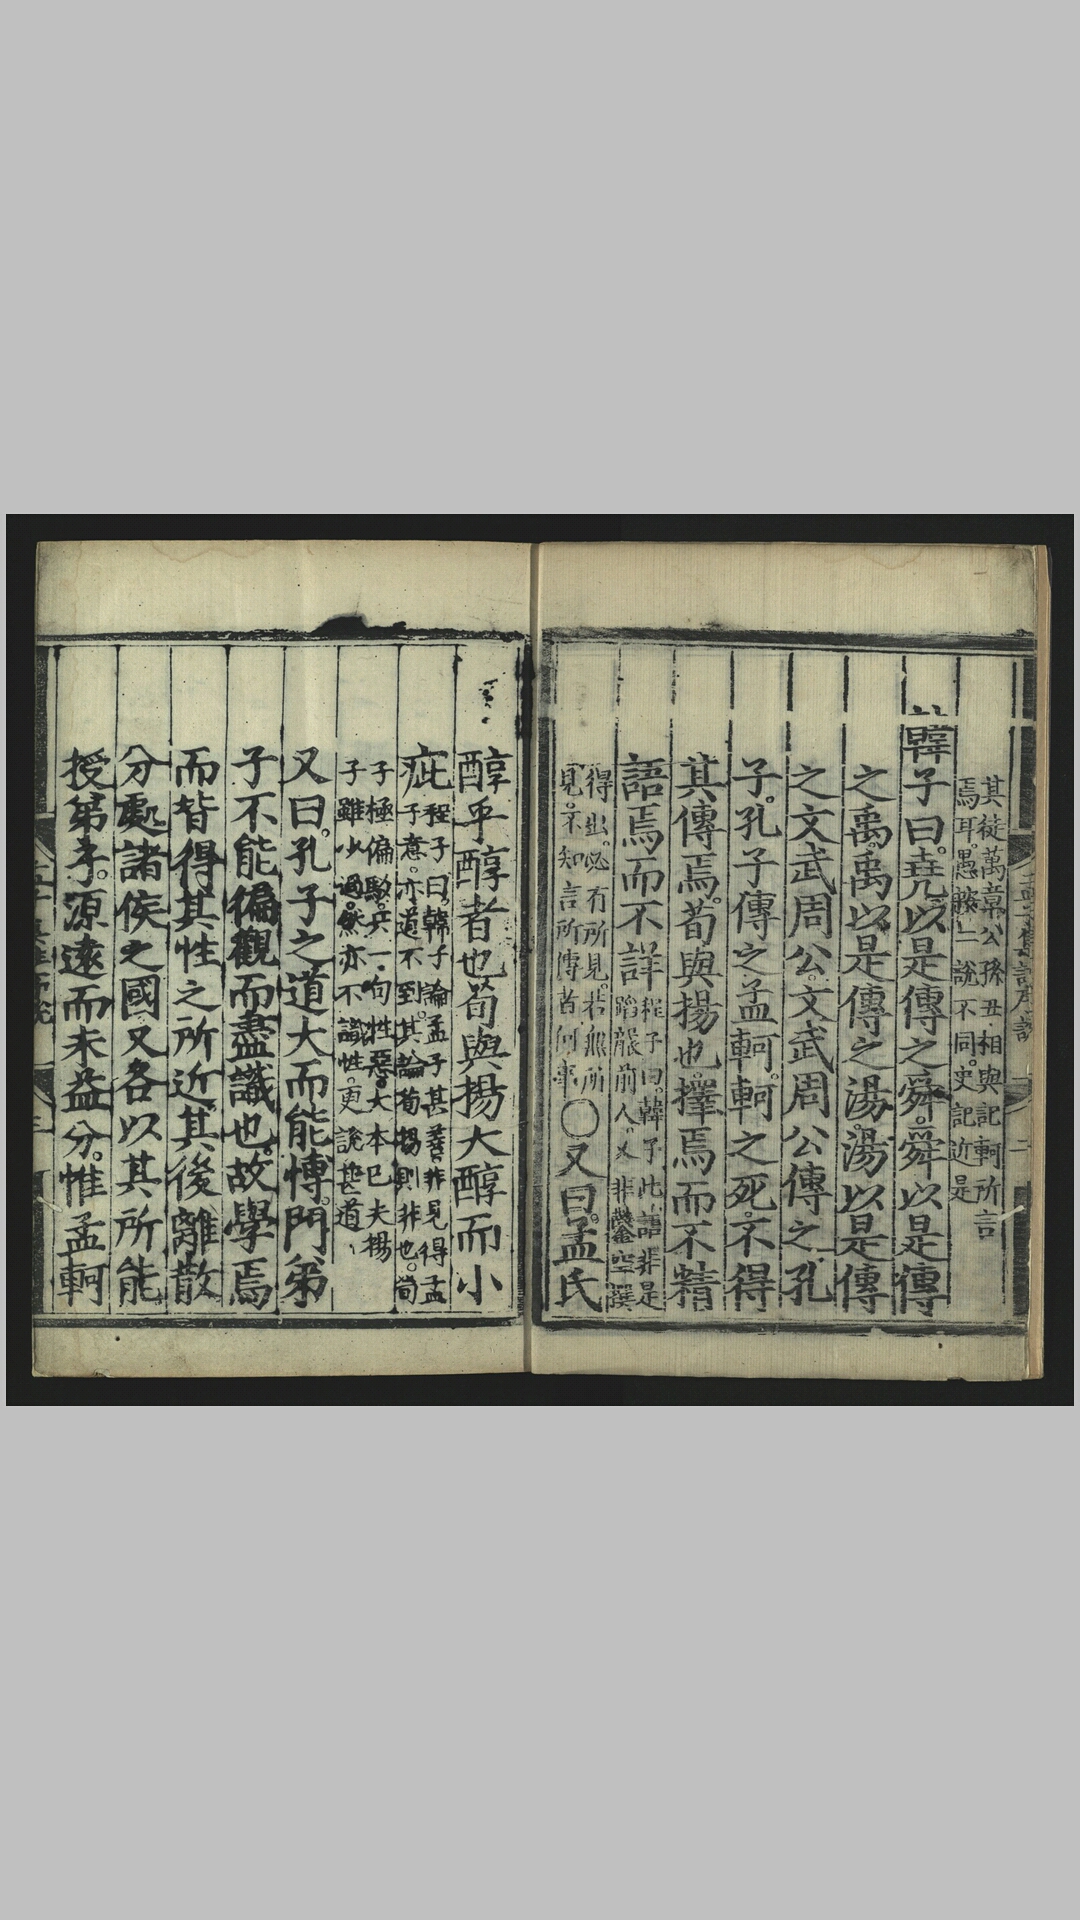 其徒萬章公孫丑相與記軻所言
焉耳。愚按二說不同。史記近是
韓子曰。堯以是傳之舜。舜以是傳
之禹。禹以是傳之湯。湯以是傳
之文武周公。文武周公傳之孔
子。孔子傳之孟軻。軻之死。不得
其傳焉。荀與揚也。擇焉而不精
語焉而不詳程子曰。韓子此語非是
蹈襲前人。又非鑿空撰
得出。必有所見。若無所
見。不知言所傳者何事○又曰。孟氏
醇乎醇者也荀與揚大醇而小
疵程子曰。韓子論孟子甚善。非見得孟
子意。亦道不到。其論荀揚則非也。荀
子極偏駁。只一句性惡。大本已失揚
子雖少過。然亦不識性。更說甚道、
又曰。孔子之道大而能博。門弟
子不能徧觀而盡識也。故學焉
而皆得其性之所近。其後離散
分處諸侯之國又各以其所能
授弟子。源遠而末益分。惟孟軻